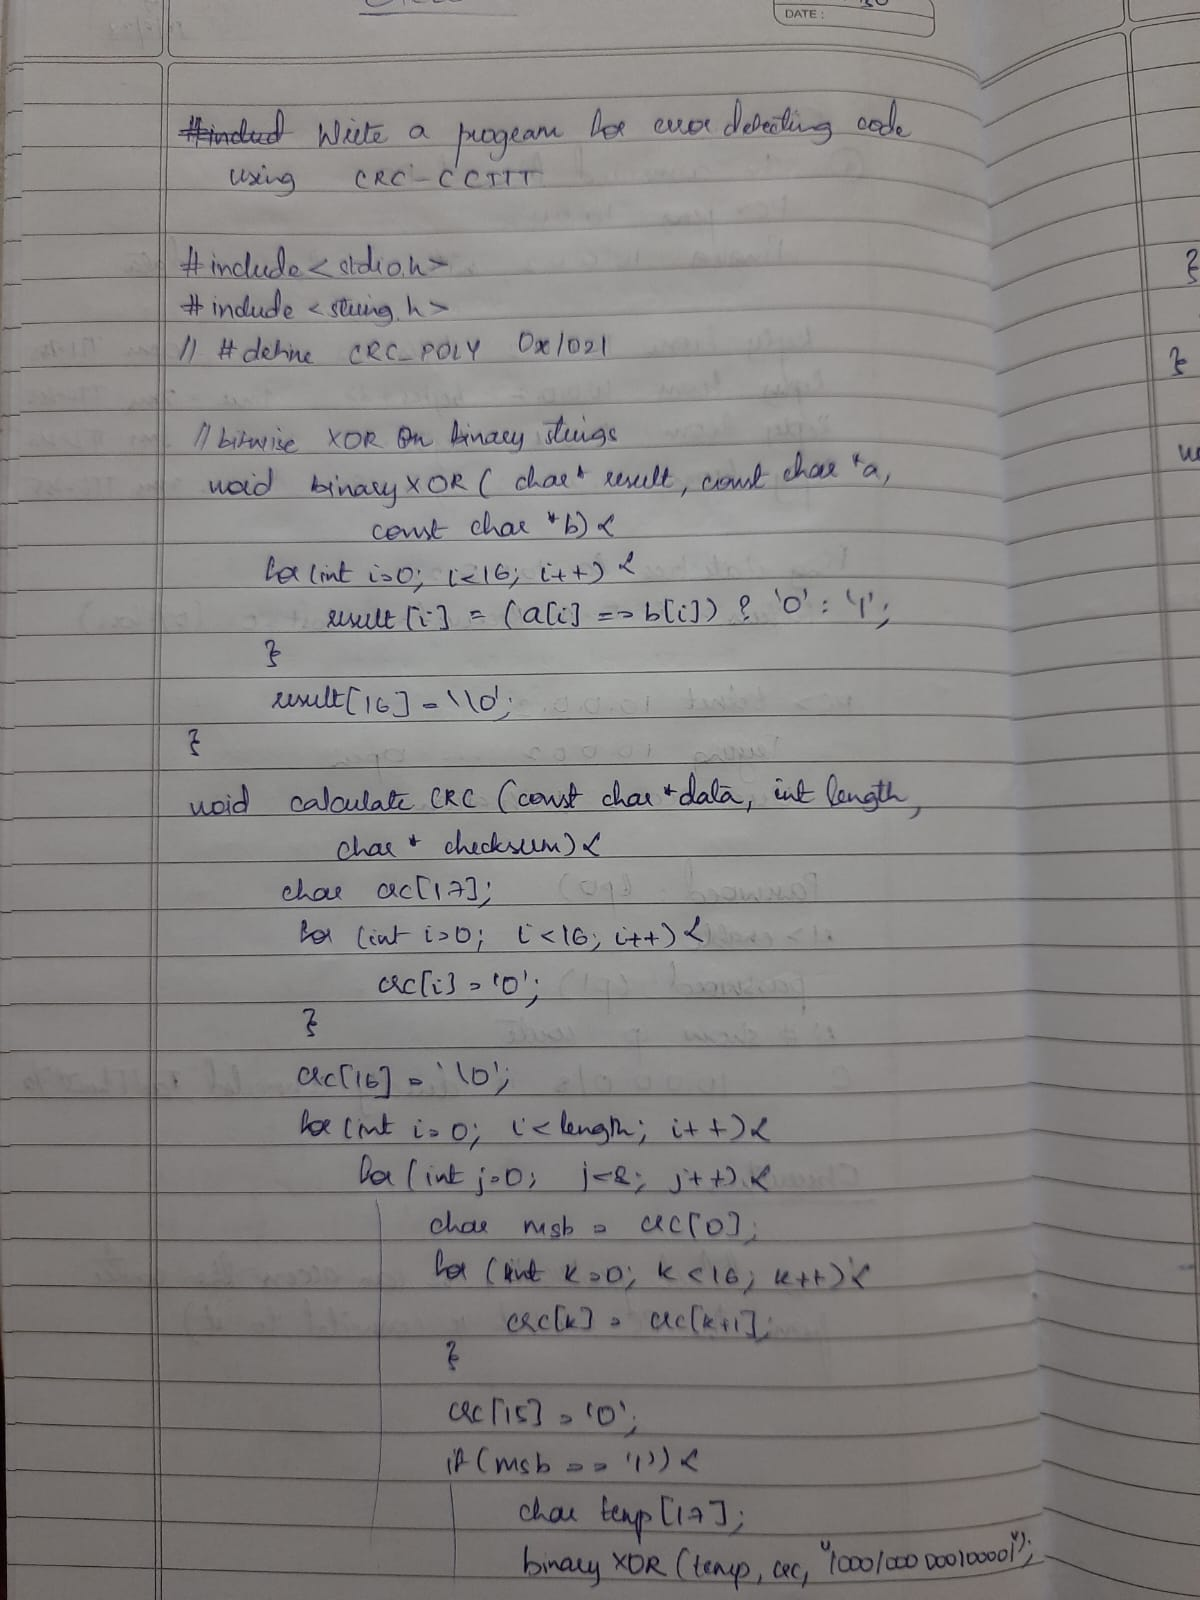 DATE :
#includ Write a program for error detecting code
using CRC-CCITT
#include <stdio.h>
#include <string.h>
// #define CRC_POLY 0x1021
// bitwise XOR on binary strings
void binaryXOR ( char* result, const char *a,
const char *b) {
for (int i=0; i<16; i++) {
result [i] = (a[i] == b[i]) ? '0' : '1';
}
result[16] = '\0';
}
void calculate CRC (const char *data, int length,
char * checksum) {
char crc[17];
for (int i=0; i<16; i++) {
crc[i] = '0';
}
crc[16] = '\0';
for (int i=0; i<length; i++) {
for (int j=0; j<8; j++) {
char msb = crc[0];
for (int k=0; k<16; k++) {
crc[k] = crc[k+1];
}
crc[15] = '0';
if (msb == '1') {
char temp [17];
binary XOR (temp, crc, "10001000000100001");